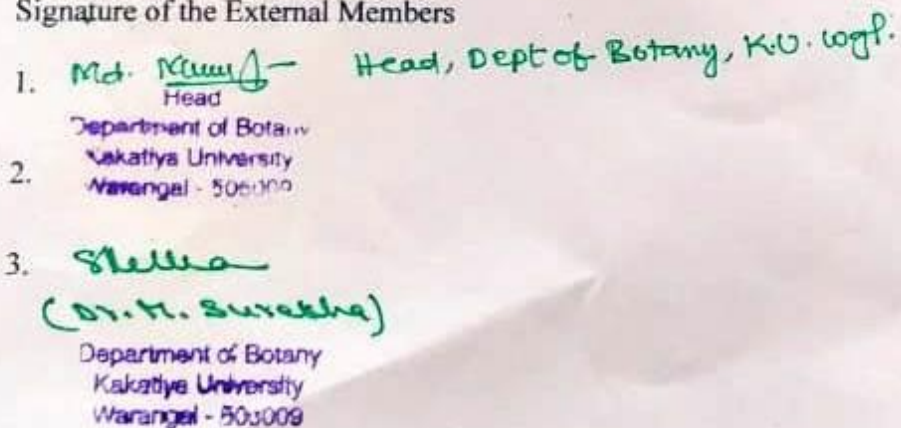 Signature of the External Members
1. Md. Head, Dept of Botany, K.U. wgl.
Head
Department of Botany
Kakatiya University
2. Warangal - 506009
3.
(Dr. M. Surekha)
Department of Botany
Kakatiya University
Warangal - 506009